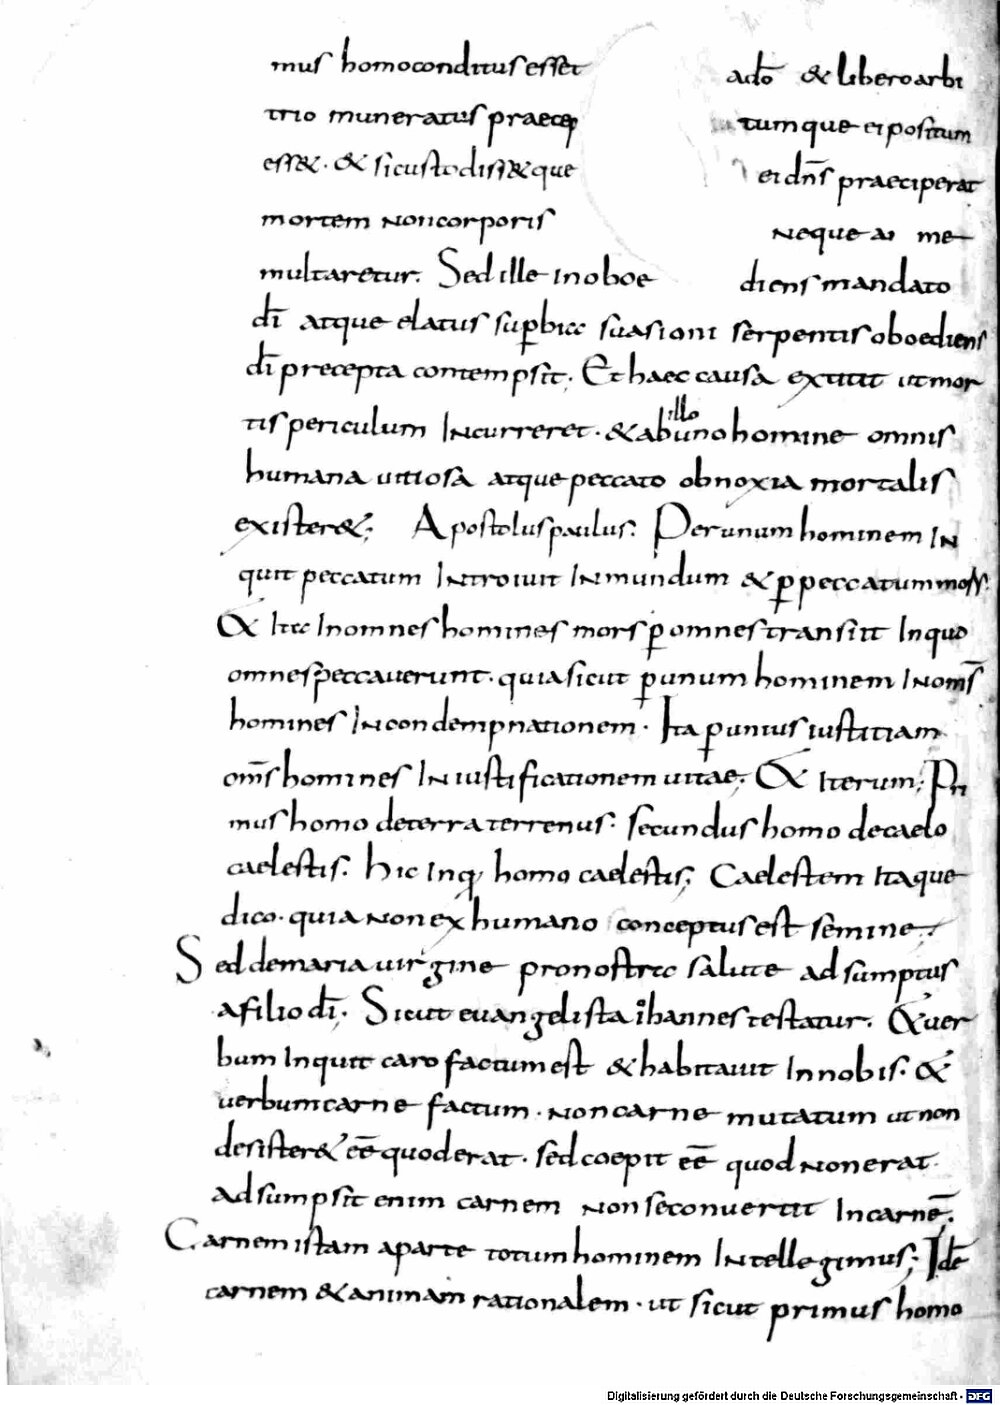 mus homo conditus esset a dō & libero arbi
trio muneratus praecep tumque ei positum
ess&. & si custodiss& que ei dn̄s praeciperat
mortem non corporis neque ai me
multaretur. Sed ille inoboe diens mandato
dī atque elatus sup̱bia suasioni serpentis oboediens
dī precepta contempsit; Et haec causa extitit ut mor
tis periculum Incurreret. & ab illo uno homine omnis
humana uitiosa atque peccato obnoxia mortalis
exister&; Apostolus paulus. Per unum hominem IN
quit peccatum INtroiuit IN mundum & p̱ peccatum mors.
& Ita In omnes homines mors p̱ omnes transiit In quo
omnes peccauerunt. quia sicut p̱ unum hominem IN om̄s
homines IN condempnationem. Ita p̱ unius iustitiam
om̄s homines IN iustificationem uitae; & Iterum; Pri
mus homo de terra terrenus. secundus homo de caelo
caelestis. hic Inq; homo caelestis; Caelestem Itaque
dico. quia non ex humano conceptus est semine;
Sed de maria uirgine pro nostra salute adsumptus
a filio dī. Sicut euangelista iohannes testatur. & uer
bum Inquit caro factum est & habitauit In nobis. &
uerbum carne factum. non carne mutatum ut non
desister& eē quod erat. sed coepit eē quod non erat.
adsumpsit enim carnem non se conuertit In carnē.
Carnem istam a parte totum hominem INtellegimus; Idē
carnem & animam rationalem. ut sicut primus homo
Digitalisierung gefördert durch die Deutsche Forschungsgemeinschaft - DFG